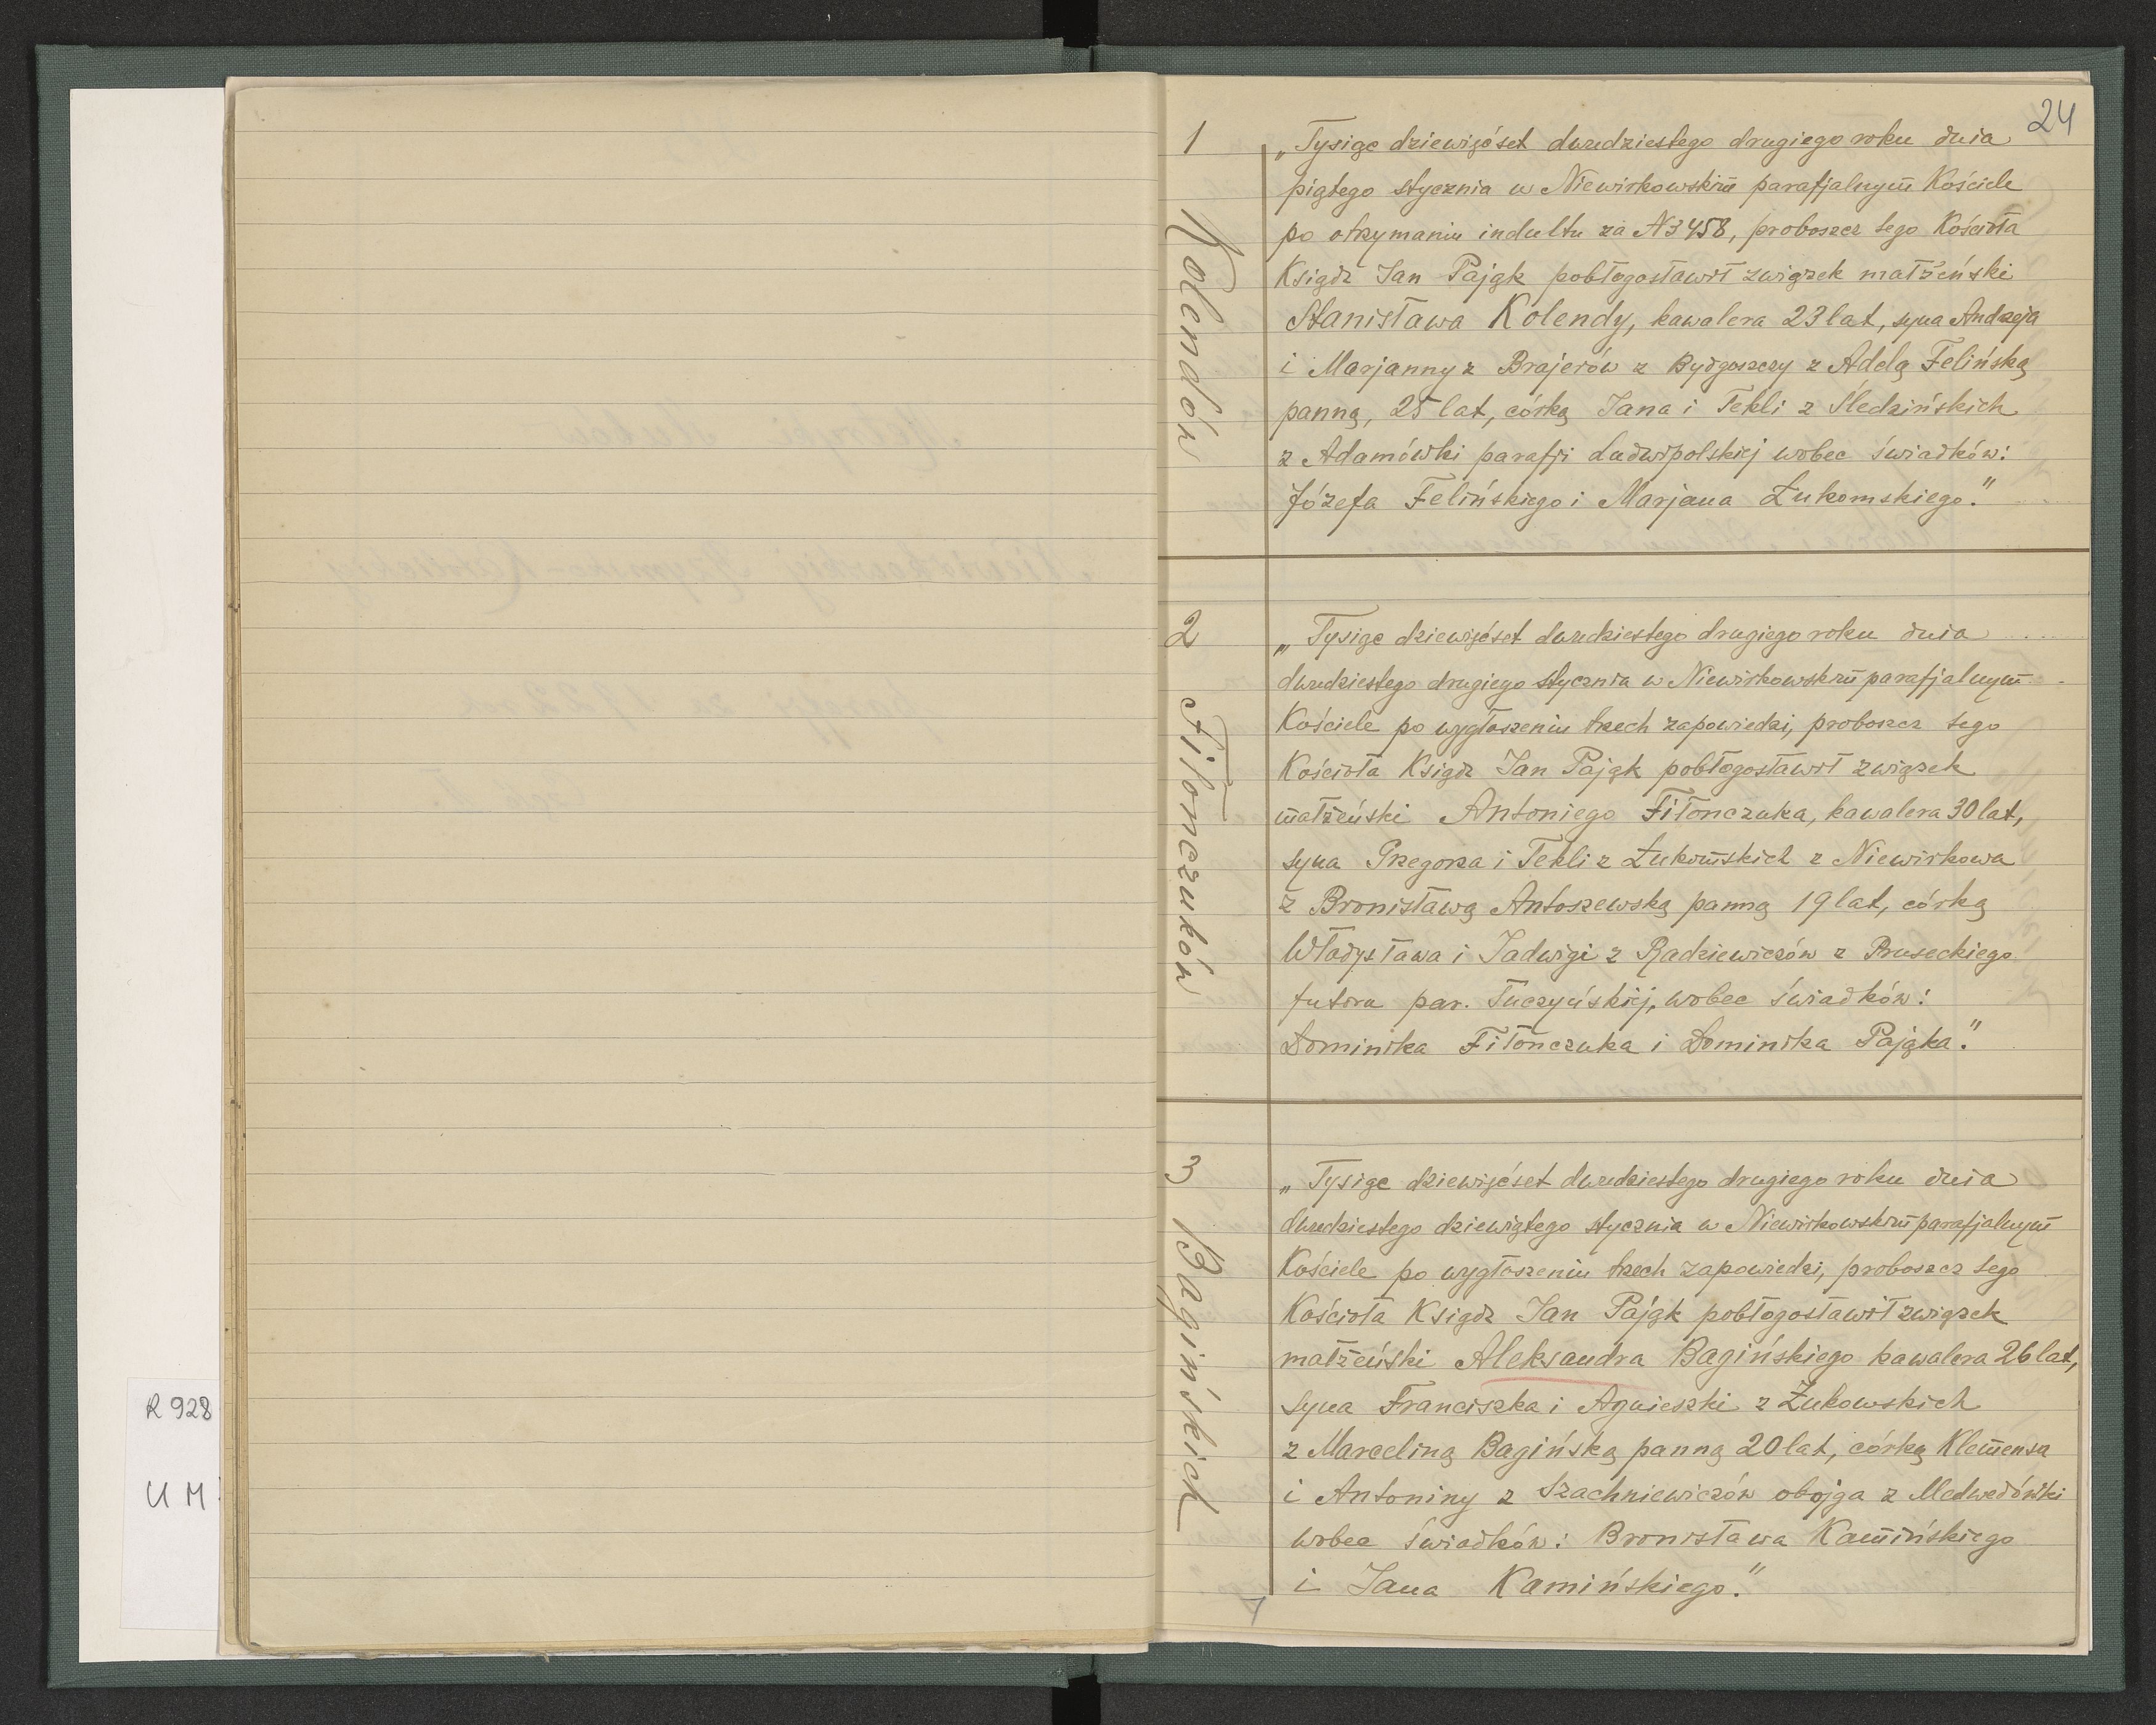 24
1
Kolendów
„Tysiąc dziewięćset dwudziestego drugiego roku dnia
piątego stycznia w Niewirkowskim parafjalnym Kościele
po otrzymaniu indultu za N3458, proboszcz tego Kościoła
Ksiądz Jan Pająk pobłogosławił związek małżeński
Stanisława Kolendy, kawalera 23 lat, syna Andrzeja
i Marjanny z Brajerów z Bydgoszczy z Adelą Felińską
panną, 25 lat, córką Jana i Tekli z Śledzińskich
z Adamówki parafji Ludwipolskiej wobec świadków:
Józefa Felińskiego i Marjana Łukomskiego."
2
Fiłonczuków
„Tysiąc dziewięćset dwudziestego drugiego roku dnia
dwudziestego drugiego stycznia w Niewirkowskim parafjalnym
Kościele po wygłoszeniu trzech zapowiedzi, proboszcz tego
Kościoła Ksiądz Jan Pająk pobłogosławił związek
małżeński Antoniego Fiłonczuka, kawalera 30 lat,
syna Grzegorza i Tekli z Łukomskich z Niewirkowa
z Bronisławą Antoszewską panną 19 lat, córką
Władysława i Jadwigi z Radziewiczów z Pruseckiego
futoru par. Tuczyńskiej, wobec świadków:
Dominika Fiłonczuka i Dominika Pająka."
3
Bagińskich
„Tysiąc dziewięćset dwudziestego drugiego roku dnia
dwudziestego dziewiątego stycznia w Niewirkowskim parafjalnym
Kościele po wygłoszeniu trzech zapowiedzi, proboszcz tego
Kościoła Ksiądz Jan Pająk pobłogosławił związek
małżeński Aleksandra Bagińskiego kawalera 26 lat,
syna Franciszka i Agnieszki z Żukowskich
z Marceliną Bagińską panną 20 lat, córką Klemensa
i Antoniny z Szachniewiczów obojga z Medwedówki
wobec świadków: Bronisława Kamińskiego
i Jana Kamińskiego."
R 928
U M